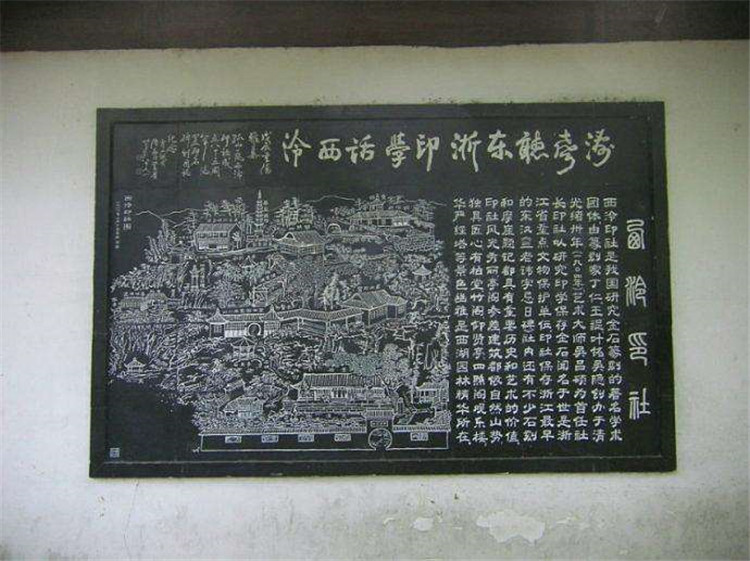 涛声听东浙印学话西冷
西泠印社
西泠印社是我国研究金石篆刻的著名学术
团体由篆刻家丁仁王禔叶铭吴隐创办于清
光绪卅年(一九〇四年)艺术大师吴昌硕为首任社
长印社以研究印学保存金石闻名于世是浙
江省重点文物保护单位印社保存浙江最早
的东汉三老讳字忌日碑社内还有不少石刻
和摩崖题记都具有重要历史和艺术的价值
印社风光秀丽亭阁参差建筑都依自然山势
独具匠心有柏堂竹阁仰贤亭四照阁观乐楼
华严经塔等景色幽雅是西湖园林精华所在
西泠印社图